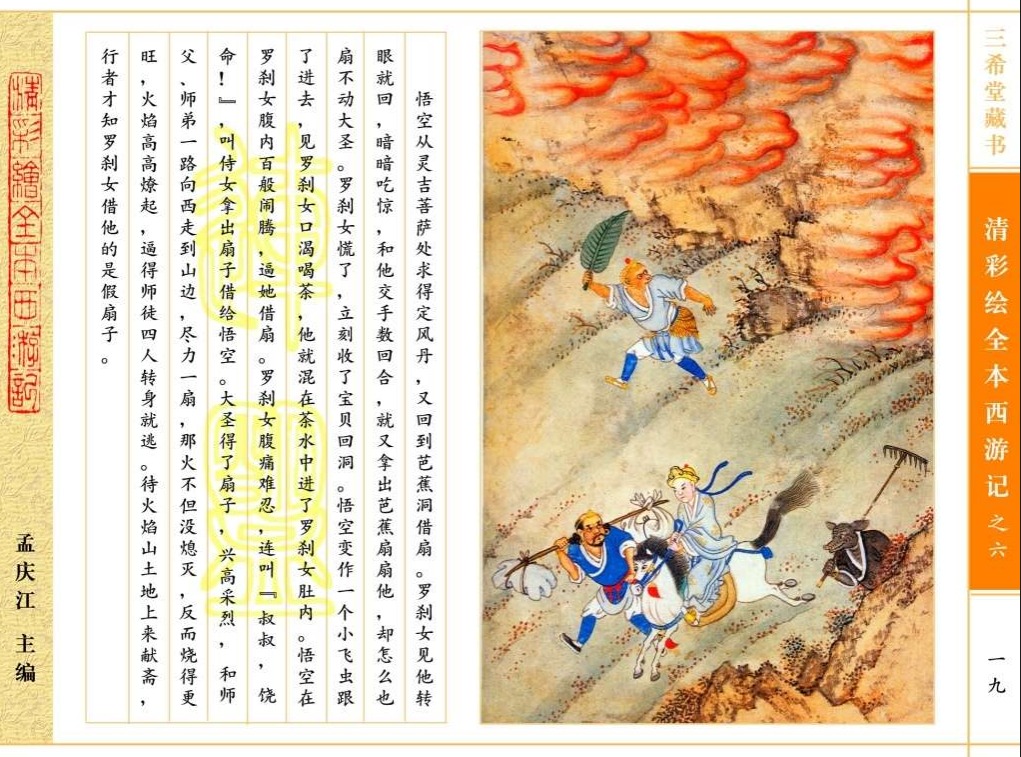 三希堂藏书
清彩绘全本西游记之六
一九
悟空从灵吉菩萨处求得定风丹，又回到芭蕉洞借扇。罗刹女见他转
眼就回，暗暗吃惊，和他交手数回合，就又拿出芭蕉扇扇他，却怎么也
扇不动大圣。罗刹女慌了，立刻收了宝贝回洞。悟空变作一个小飞虫跟
了进去，见罗刹女口渴喝茶，他就混在茶水中进了罗刹女肚内。悟空在
罗刹女腹内百般闹腾，逼她借扇。罗刹女腹痛难忍，连叫『叔叔，饶
命！』，叫侍女拿出扇子借给悟空。大圣得了扇子，兴高采烈，和师
父、师弟一路向西走到山边，尽力一扇，那火不但没熄灭，反而烧得更
旺，火焰高高燎起，逼得师徒四人转身就逃。待火焰山土地上来献斋，
行者才知罗刹女借他的是假扇子。
清彩繪全本西游記
孟庆江 主编